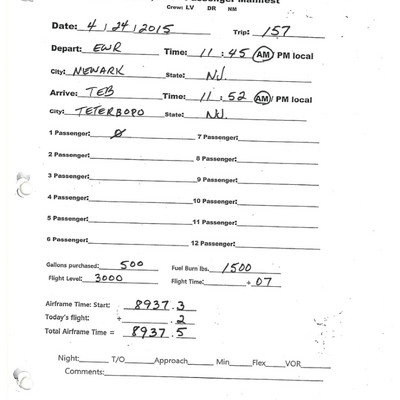 Passenger Manifest
Crew: LV DR NM
Date: 4/24/2015 Trip: 157
Depart: EWR Time: 11:45 AM / PM local
City: NEWARK State: NJ.
Arrive: TEB Time: 11:52 AM / PM local
City: TETERBORO State: NJ.
1 Passenger: 0 7 Passenger:
2 Passenger: 8 Passenger:
3 Passenger: 9 Passenger:
4 Passenger: 10 Passenger:
5 Passenger: 11 Passenger:
6 Passenger: 12 Passenger:
Gallons purchased: 500 Fuel Burn lbs. 1500
Flight Level: 3000 Flight Time: + 07
Airframe Time: Start: 8937.3
Today's flight: + .2
Total Airframe Time = 8937.5
Night: T/O Approach Min Flex VOR
Comments: